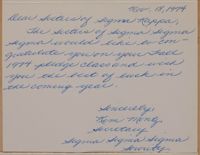 Nov. 18, 1974
Dear Sisters of Sigma Kappa,
The Sisters of Sigma Sigma
Sigma would like to con-
gratulate you on your Fall
1974 pledge class and wish
you the best of luck in
the coming year.
Sincerely,
Secretary
Sigma Sigma Sigma
Sorority